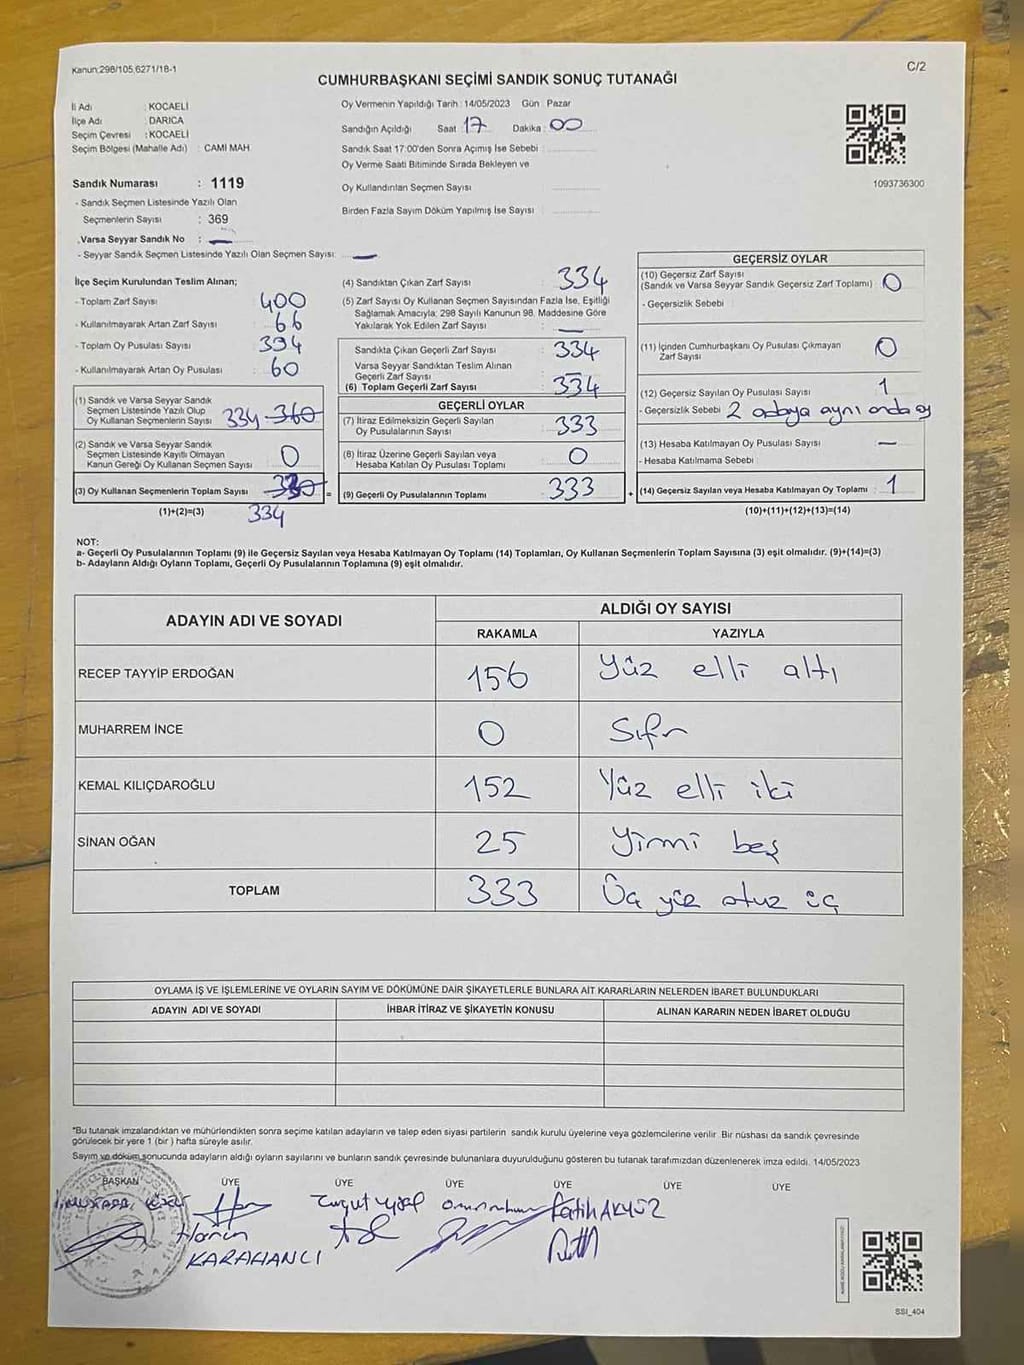 Kanun;298/105,6271/18-1
C/2
CUMHURBAŞKANI SEÇİMİ SANDIK SONUÇ TUTANAĞI
İl Adı : KOCAELİ
İlçe Adı : DARICA
Seçim Çevresi : KOCAELİ
Seçim Bölgesi (Mahalle Adı) : CAMİ MAH.
Sandık Numarası : 1119
- Sandık Seçmen Listesinde Yazılı Olan
Seçmenlerin Sayısı : 369
Varsa Seyyar Sandık No : —
- Seyyar Sandık Seçmen Listesinde Yazılı Olan Seçmen Sayısı: —
Oy Vermenin Yapıldığı Tarih : 14/05/2023 Gün : Pazar
Sandığın Açıldığı Saat 17 Dakika : 00
Sandık Saat 17:00'den Sonra Açımış İse Sebebi :
Oy Verme Saati Bitiminde Sırada Bekleyen ve
Oy Kullandırılan Seçmen Sayısı
Birden Fazla Sayım Döküm Yapılmış İse Sayısı :
1093736300
İlçe Seçim Kurulundan Teslim Alınan;
- Toplam Zarf Sayısı : 400
- Kullanılmayarak Artan Zarf Sayısı : 66
- Toplam Oy Pusulası Sayısı : 394
- Kullanılmayarak Artan Oy Pusulası : 60
(1) Sandık ve Varsa Seyyar Sandık
Seçmen Listesinde Yazılı Olup
Oy Kullanan Seçmenlerin Sayısı 334 360
(2) Sandık ve Varsa Seyyar Sandık
Seçmen Listesinde Kayıtlı Olmayan
Kanun Gereği Oy Kullanan Seçmen Sayısı 0
(3) Oy Kullanan Seçmenlerin Toplam Sayısı
(1)+(2)=(3) 334
(4) Sandıktan Çıkan Zarf Sayısı : 334
(5) Zarf Sayısı Oy Kullanan Seçmen Sayısından Fazla İse, Eşitliği
Sağlamak Amacıyla; 298 Sayılı Kanunun 98. Maddesine Göre
Yakılarak Yok Edilen Zarf Sayısı : —
Sandıkta Çıkan Geçerli Zarf Sayısı : 334
Varsa Seyyar Sandıktan Teslim Alınan
Geçerli Zarf Sayısı : —
(6) Toplam Geçerli Zarf Sayısı : 334
GEÇERLİ OYLAR
(7) İtiraz Edilmeksizin Geçerli Sayılan
Oy Pusulalarının Sayısı : 333
(8) İtiraz Üzerine Geçerli Sayılan veya
Hesaba Katılan Oy Pusulası Toplamı : 0
(9) Geçerli Oy Pusulalarının Toplamı : 333
GEÇERSİZ OYLAR
(10) Geçersiz Zarf Sayısı
(Sandık ve Varsa Seyyar Sandık Geçersiz Zarf Toplamı) : 0
- Geçersizlik Sebebi :
(11) İçinden Cumhurbaşkanı Oy Pusulası Çıkmayan
Zarf Sayısı : 0
(12) Geçersiz Sayılan Oy Pusulası Sayısı : 1
- Geçersizlik Sebebi : 2 adaya aynı anda oy
(13) Hesaba Katılmayan Oy Pusulası Sayısı : —
- Hesaba Katılmama Sebebi :
(14) Geçersiz Sayılan veya Hesaba Katılmayan Oy Toplamı : 1
(10)+(11)+(12)+(13)=(14)
NOT:
a- Geçerli Oy Pusulalarının Toplamı (9) ile Geçersiz Sayılan veya Hesaba Katılmayan Oy Toplamı (14) Toplamları, Oy Kullanan Seçmenlerin Toplam Sayısına (3) eşit olmalıdır. (9)+(14)=(3)
b- Adayların Aldığı Oyların Toplamı, Geçerli Oy Pusulalarının Toplamına (9) eşit olmalıdır.
ADAYIN ADI VE SOYADI ALDIĞI OY SAYISI
RAKAMLA YAZIYLA
RECEP TAYYİP ERDOĞAN 156 Yüz elli altı
MUHARREM İNCE 0 Sıfır
KEMAL KILIÇDAROĞLU 152 Yüz elli iki
SİNAN OĞAN 25 Yirmi beş
TOPLAM 333 Üç yüz otuz üç
OYLAMA İŞ VE İŞLEMLERİNE VE OYLARIN SAYIM VE DÖKÜMÜNE DAİR ŞİKAYETLERLE BUNLARA AİT KARARLARIN NELERDEN İBARET BULUNDUKLARI
ADAYIN ADI VE SOYADI İHBAR İTİRAZ VE ŞİKAYETİN KONUSU ALINAN KARARIN NEDEN İBARET OLDUĞU
"Bu tutanak imzalandıktan ve mühürlendikten sonra seçime katılan adayların ve talep eden siyasi partilerin sandık kurulu üyelerine veya gözlemcilerine verilir. Bir nüshası da sandık çevresinde
görülecek bir yere 1 (bir ) hafta süreyle asılır.
Sayım ve döküm sonucunda adayların aldığı oyların sayılarını ve bunların sandık çevresinde bulunanlara duyurulduğunu gösteren bu tutanak tarafımızdan düzenlenerek imza edildi. 14/05/2023
BAŞKAN ÜYE ÜYE ÜYE ÜYE ÜYE ÜYE
Turgut Fatih AKYÜZ
KARAHANCI
SSI_404